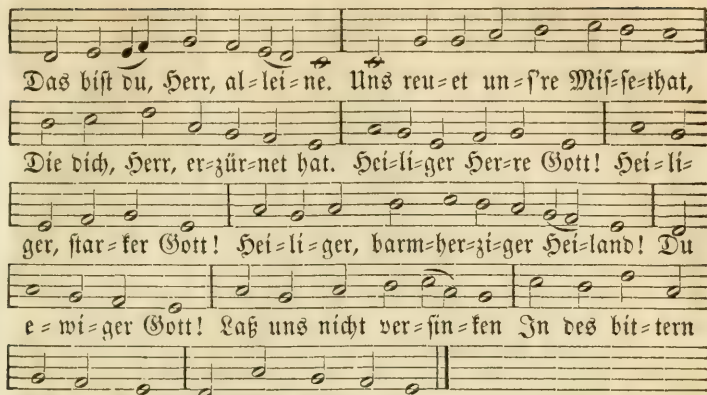 Das bist du, Herr, al=lei=ne. Uns reu=et un=s're Mis=se=that,
Die dich, Herr, er=zür=net hat. Hei=li=ger Her=re Gott! Hei=li=
ger, star=ker Gott! Hei=li=ger, barm=her=zi=ger Hei=land! Du
e=wi=ger Gott! Laß uns nicht ver=sin=ken In des bit=tern